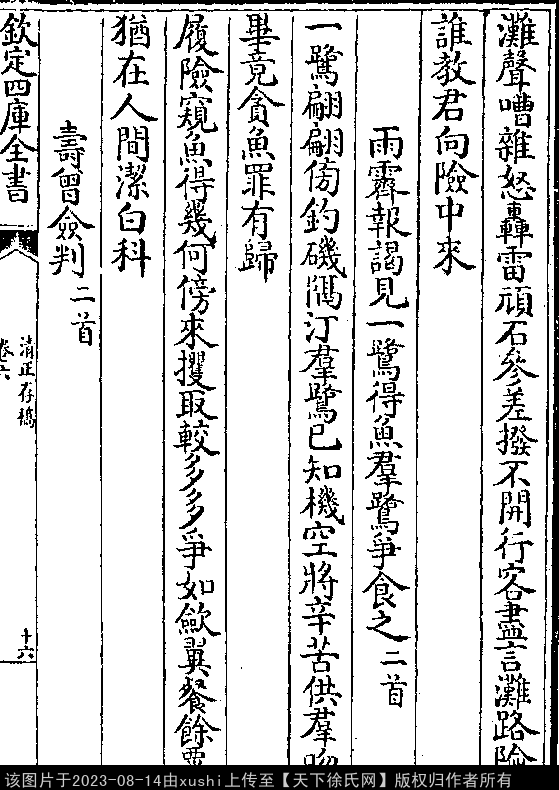 灘聲嘈雜怒轟雷頑石參差撥不開行客盡言灘路險
誰教君向險中來
雨霽報謁見一鷺得魚羣鷺爭食之二首
一鷺翩翩傍釣磯隔汀羣鷺已知機空將辛苦供羣
畢竟貪魚罪有歸
履險窺魚得幾何傍來攫取較多多爭如斂翼餐餘粟
猶在人間潔白科
壽曾僉判二首
欽定四庫全書
清正存稿
卷六
十六
该图片于2023-08-14由xushi上传至【天下徐氏网】版权归作者所有